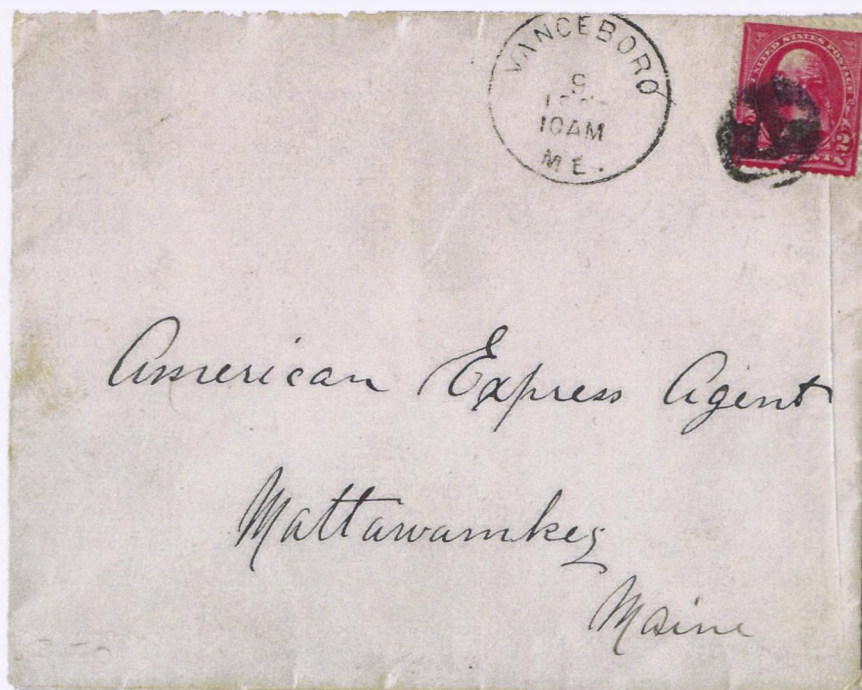 VANCEBORO
9
10AM
ME.
UNITED STATES POSTAGE
2
American Express Agent
Mattawamkeg
Maine